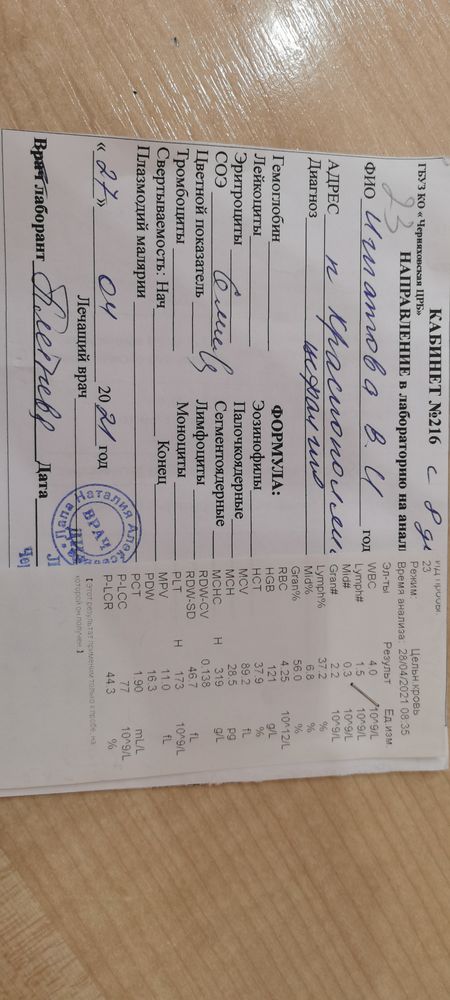 КАБИНЕТ №216
ГБУЗ КО « Черняховская ЦРБ»
23 НАПРАВЛЕНИЕ в лабораторию на анали
ФИО Игнатова В. И год
АДРЕС п Краснополян
Диагноз
ФОРМУЛА:
Гемоглобин
Лейкоциты Эозинофилы
Эритроциты Палочкоядерные
СОЭ 6мм/ч Сегментоядерные
Цветной показатель Лимфоциты
Тромбоциты Моноциты
Свертываемость: Нач Конец
Плазмодий малярии
« 27 » 04 2021 год
Лечащий врач
Врач лаборант Дата
на Наталия Алекс
ВРАЧ
23
Режим: Цельн.кровь
Время анализа: 28/04/2021 08:35
Эл-ты Результ Ед.изм
WBC 4.0 10^9/L
Lymph# 1.5 10^9/L
Mid# 0.3 10^9/L
Gran# 2.2 10^9/L
Lymph% 37.2 %
Mid% 6.8 %
Gran% 56.0 %
RBC 4.25 10^12/L
HGB 121 g/L
HCT 37.9 %
MCV 89.2 fL
MCH 28.5 pg
MCHC H 319 g/L
RDW-CV 0.138
RDW-SD 46.7 fL
PLT H 173 10^9/L
MPV 11.0 fL
PDW 16.3
PCT 1.90 mL/L
P-LCC 77 10^9/L
P-LCR 44.3 %
【Этот результат применим только к пробе, на
которой он получен.】